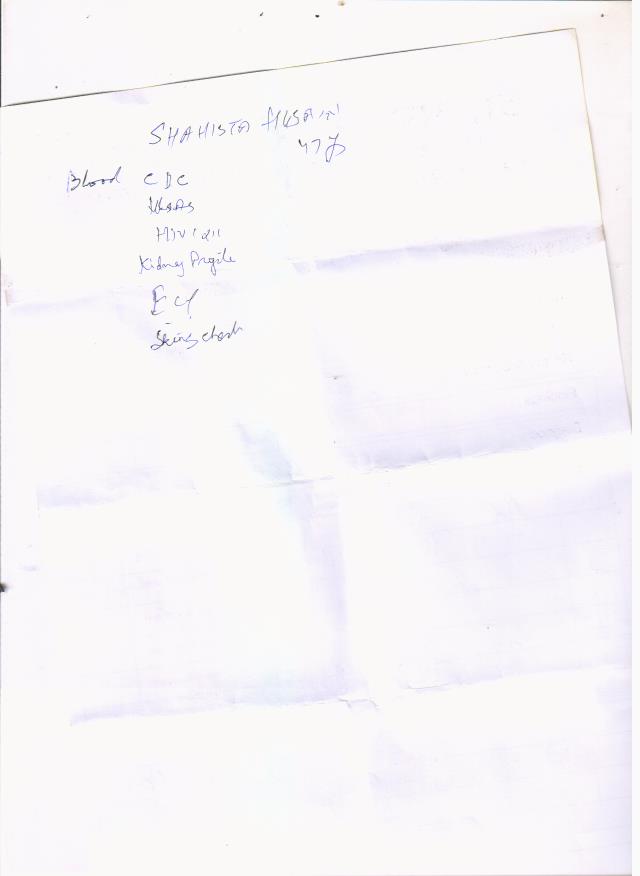 SHAHISTA HUSAIN
47 y
Blood CBC
HBsAg
HIV I & II
Kidney Profile
ECG